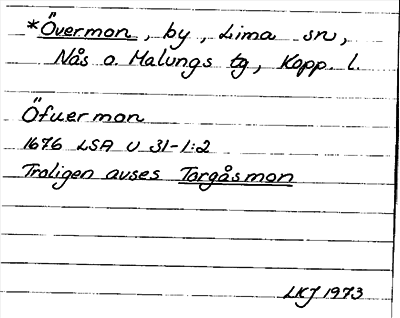 *Övermon, by, Lima sn,
Nås o. Malungs tg, Kopp. l.
Öfuermon
1676 LSA U 31-1:2
Troligen avses Torgåsmon
LKJ 1973